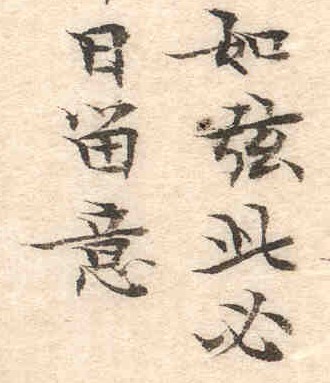 如弦此必
日留意